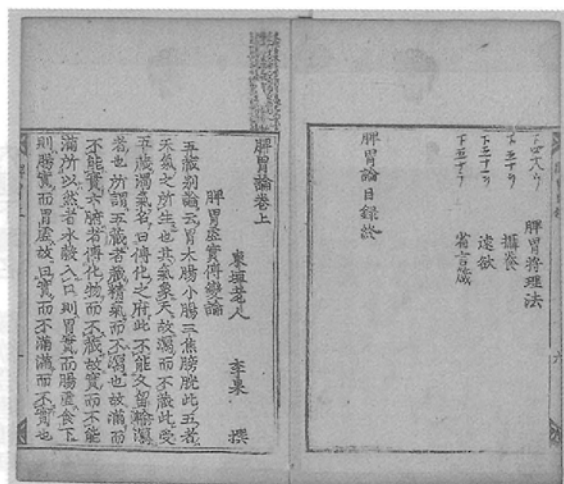 脾胃將理法
攝養
遠欲
省言箴
脾胃論目録終
脾胃論卷上
東垣老人 李杲 撰
脾胃虛實傳變論
五藏别論云胃大腸小腸三焦膀胱此五者
天氣之所生也其氣象天故瀉而不藏此受
五藏濁氣名曰傳化之府此不能久留輸瀉
者也所謂五藏者藏精氣而不瀉也故滿而
不能實六腑者傳化物而不藏故實而不能
滿所以然者水穀入口則胃實而腸虛食下
則腸實而胃虛故曰實而不滿滿而不實也